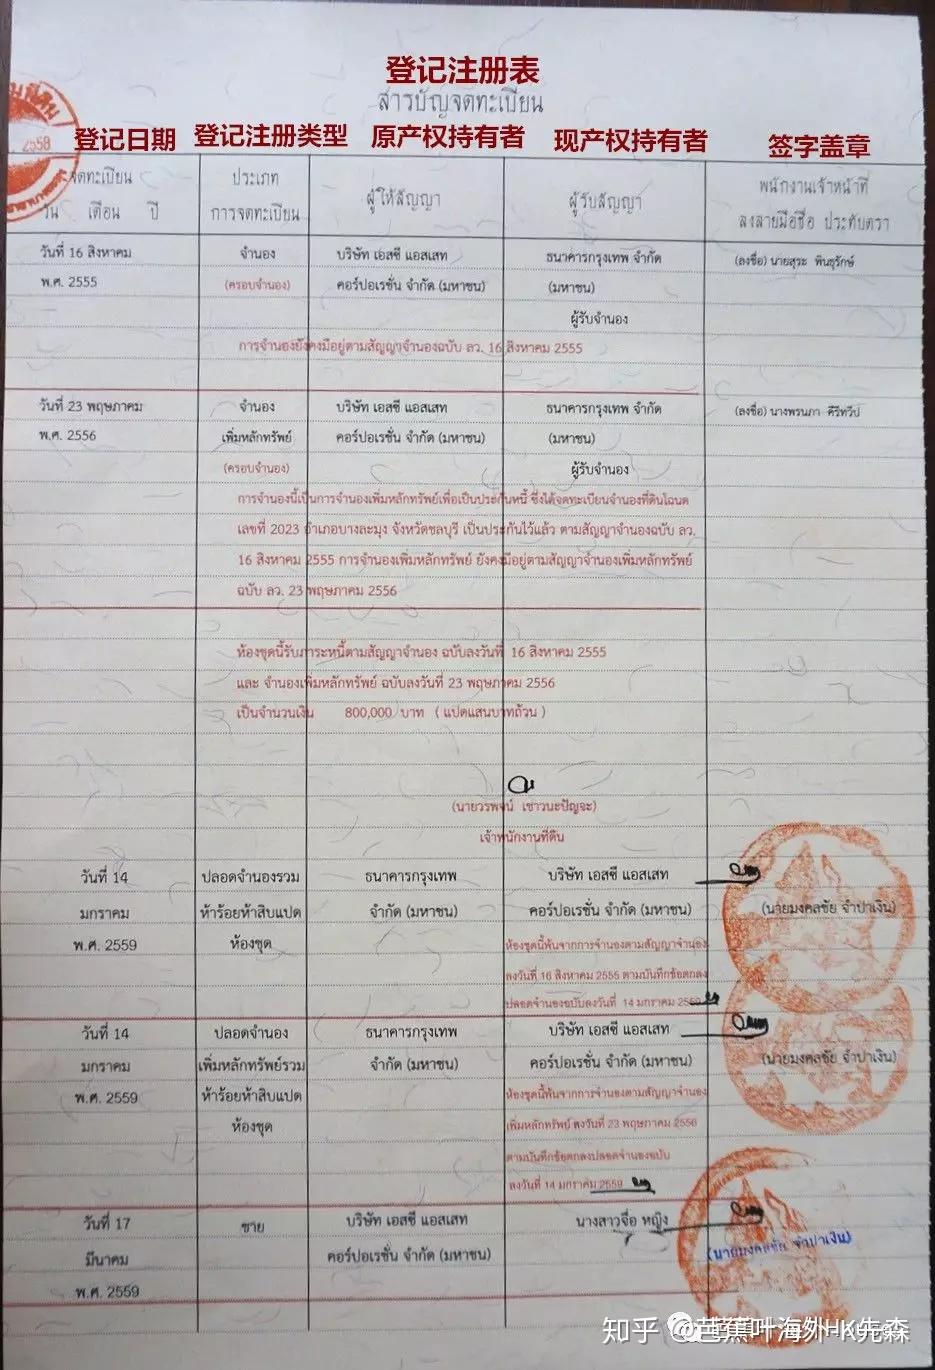 登记注册表
สารบัญจดทะเบียน
登记日期 登记注册类型 原产权持有者 现产权持有者 签字盖章
2558
จดทะเบียน
วัน เดือน ปี
ประเภท
การจดทะเบียน
ผู้ให้สัญญา
ผู้รับสัญญา
พนักงานเจ้าหน้าที่
ลงลายมือชื่อ ประทับตรา
วันที่ 16 สิงหาคม
พ.ศ. 2555
จำนอง
(ครอบจำนอง)
บริษัท เอสซี แอสเสท
คอร์ปอเรชั่น จำกัด (มหาชน)
ธนาคารกรุงเทพ จำกัด
(มหาชน)
ผู้รับจำนอง
(ลงชื่อ) นายสุระ พินธุรักษ์
การจำนองยังคงมีอยู่ตามสัญญาจำนองฉบับ ลว. 16 สิงหาคม 2555
วันที่ 23 พฤษภาคม
พ.ศ. 2556
จำนอง
เพิ่มหลักทรัพย์
(ครอบจำนอง)
บริษัท เอสซี แอสเสท
คอร์ปอเรชั่น จำกัด (มหาชน)
ธนาคารกรุงเทพ จำกัด
(มหาชน)
ผู้รับจำนอง
(ลงชื่อ) นางพรนภา คีรีทวีป
การจำนองนี้เป็นการจำนองเพิ่มหลักทรัพย์เพื่อเป็นประกันหนี้ ซึ่งได้จดทะเบียนจำนองที่ดินโฉนด
เลขที่ 2023 อำเภอบางละมุง จังหวัดชลบุรี เป็นประกันไว้แล้ว ตามสัญญาจำนองฉบับ ลว.
16 สิงหาคม 2555 การจำนองเพิ่มหลักทรัพย์ ยังคงมีอยู่ตามสัญญาจำนองเพิ่มหลักทรัพย์
ฉบับ ลว. 23 พฤษภาคม 2556
ห้องชุดนี้รับภาระหนี้ตามสัญญาจำนอง ฉบับลงวันที่ 16 สิงหาคม 2555
และ จำนองเพิ่มหลักทรัพย์ ฉบับลงวันที่ 23 พฤษภาคม 2556
เป็นจำนวนเงิน 800,000 บาท ( แปดแสนบาทถ้วน )
(นายวรพจน์ เชาวนะปัญจะ)
เจ้าพนักงานที่ดิน
วันที่ 14
มกราคม
พ.ศ. 2559
ปลอดจำนองรวม
ห้าร้อยห้าสิบแปด
ห้องชุด
ธนาคารกรุงเทพ
จำกัด (มหาชน)
บริษัท เอสซี แอสเสท
คอร์ปอเรชั่น จำกัด (มหาชน)
ห้องชุดนี้พ้นจากการจำนองตามสัญญาจำนอง
ลงวันที่ 16 สิงหาคม 2555 ตามบันทึกข้อตกลง
ปลอดจำนองฉบับลงวันที่ 14 มกราคม 2559
(นายมงคลชัย จำปาเงิน)
วันที่ 14
มกราคม
พ.ศ. 2559
ปลอดจำนอง
เพิ่มหลักทรัพย์รวม
ห้าร้อยห้าสิบแปด
ห้องชุด
ธนาคารกรุงเทพ
จำกัด (มหาชน)
บริษัท เอสซี แอสเสท
คอร์ปอเรชั่น จำกัด (มหาชน)
ห้องชุดนี้พ้นจากการจำนองตามสัญญาจำนอง
เพิ่มหลักทรัพย์ ลงวันที่ 23 พฤษภาคม 2556
ตามบันทึกข้อตกลงปลอดจำนองฉบับ
ลงวันที่ 14 มกราคม 2559
(นายมงคลชัย จำปาเงิน)
วันที่ 17
มีนาคม
พ.ศ. 2559
ขาย
บริษัท เอสซี แอสเสท
คอร์ปอเรชั่น จำกัด (มหาชน)
นางสาวจื่อ หญิง
(นายมงคลชัย จำปาเงิน)
知乎 @芭蕉叶海外HK先森